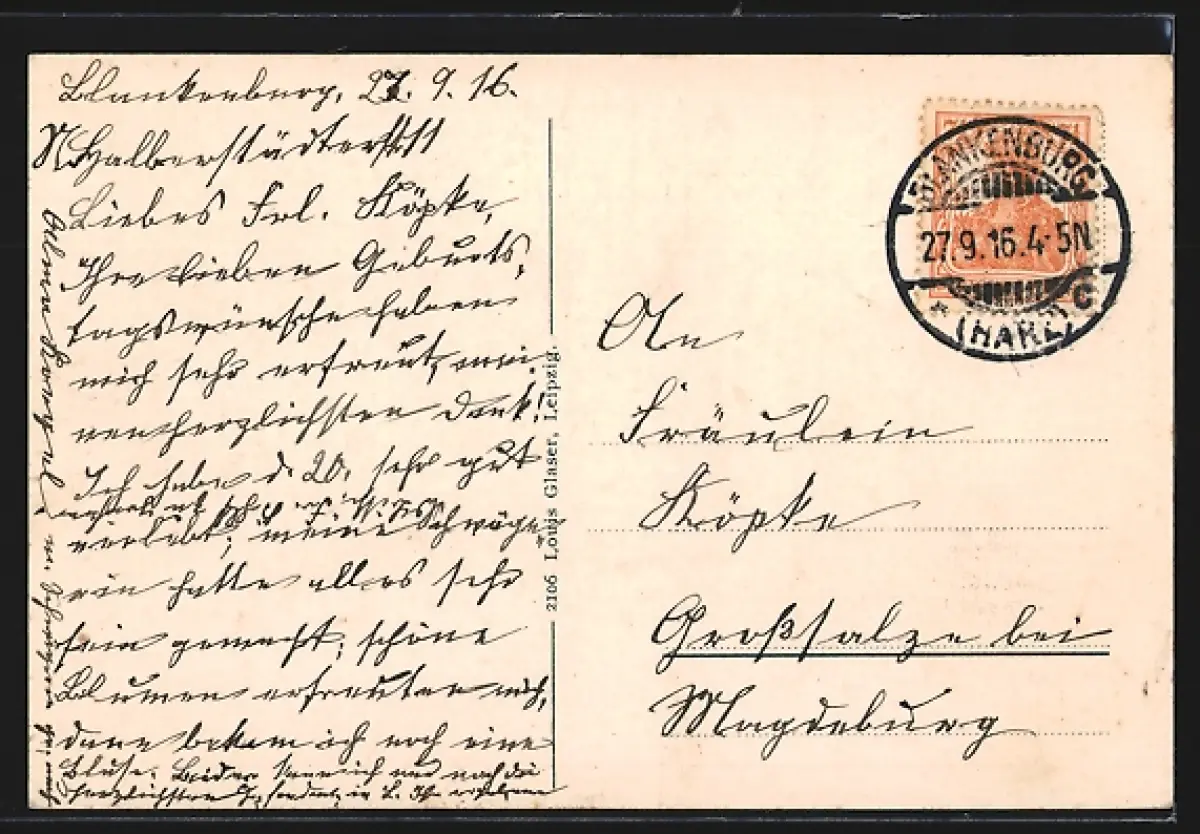 Blankenburg, 27. 9. 16.
Halberstädterstr 11
Liebes Frl. Köpke,
Ihre lieben Geburts-
tagswünsche haben
mich sehr erfreut, mei-
nen herzlichsten Dank!
Ich habe d. 20. sehr gut
verlebt; meine Schwäge-
rin hatte alles sehr
fein gemacht; schöne
Blumen erfreuten mich,
dann bekam ich noch eine
Bluse. Leider kann ich nur noch die
herzlichsten
2106 Louis Glaser, Leipzig.
BLANKENBURG
27.9.16.4-5N
* (HARZ) C
An
Fräulein
Köpke
Großsalze bei
Magdeburg